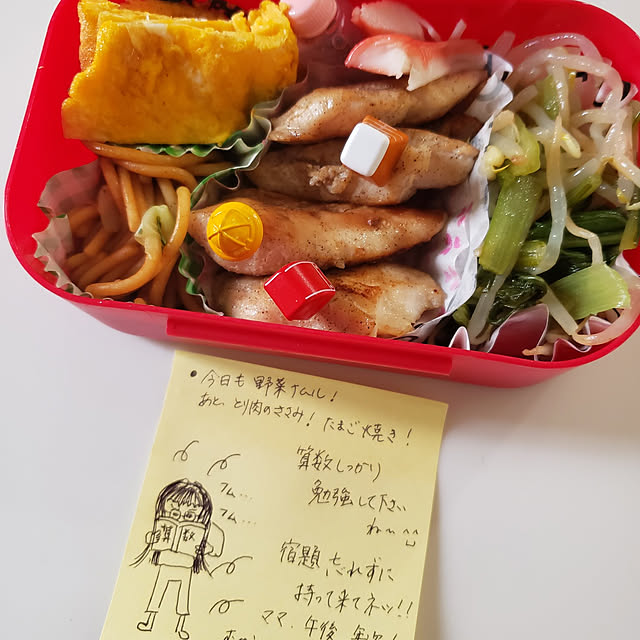 • 今日も 野菜ナムル!
あと、とり肉のささみ! たまご焼き!
算数しっかり
勉強して下さい
ね〜 ^^
フム...
フム...
算数
宿題 忘れずに
持って来てネッ!!
ママ、午後